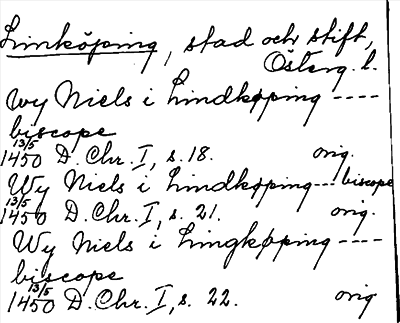 Linköping, stad och stift,
Österg. l.
wy Niels i Lindkøping ----
biscope
13/5
1450 D. Chr. I, s. 18. orig.
Wy Niels i Lindkøping --- biscope
13/5
1450 D. Chr. I, s. 21. orig.
Wy Niels i Lingkøping ----
biscope
13/5
1450 D. Chr. I, s. 22. orig